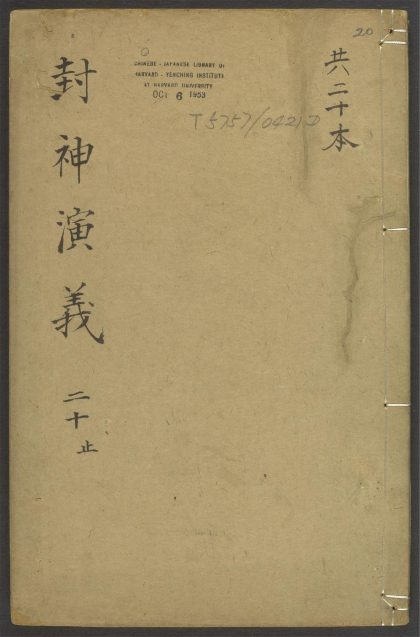 共二十本
20
CHINESE - JAPANESE LIBRARY OF
HARVARD - YENCHING INSTITUTE
AT HARVARD UNIVERSITY
OCT 6 1953
T5757/0421D
封神演義
二十止